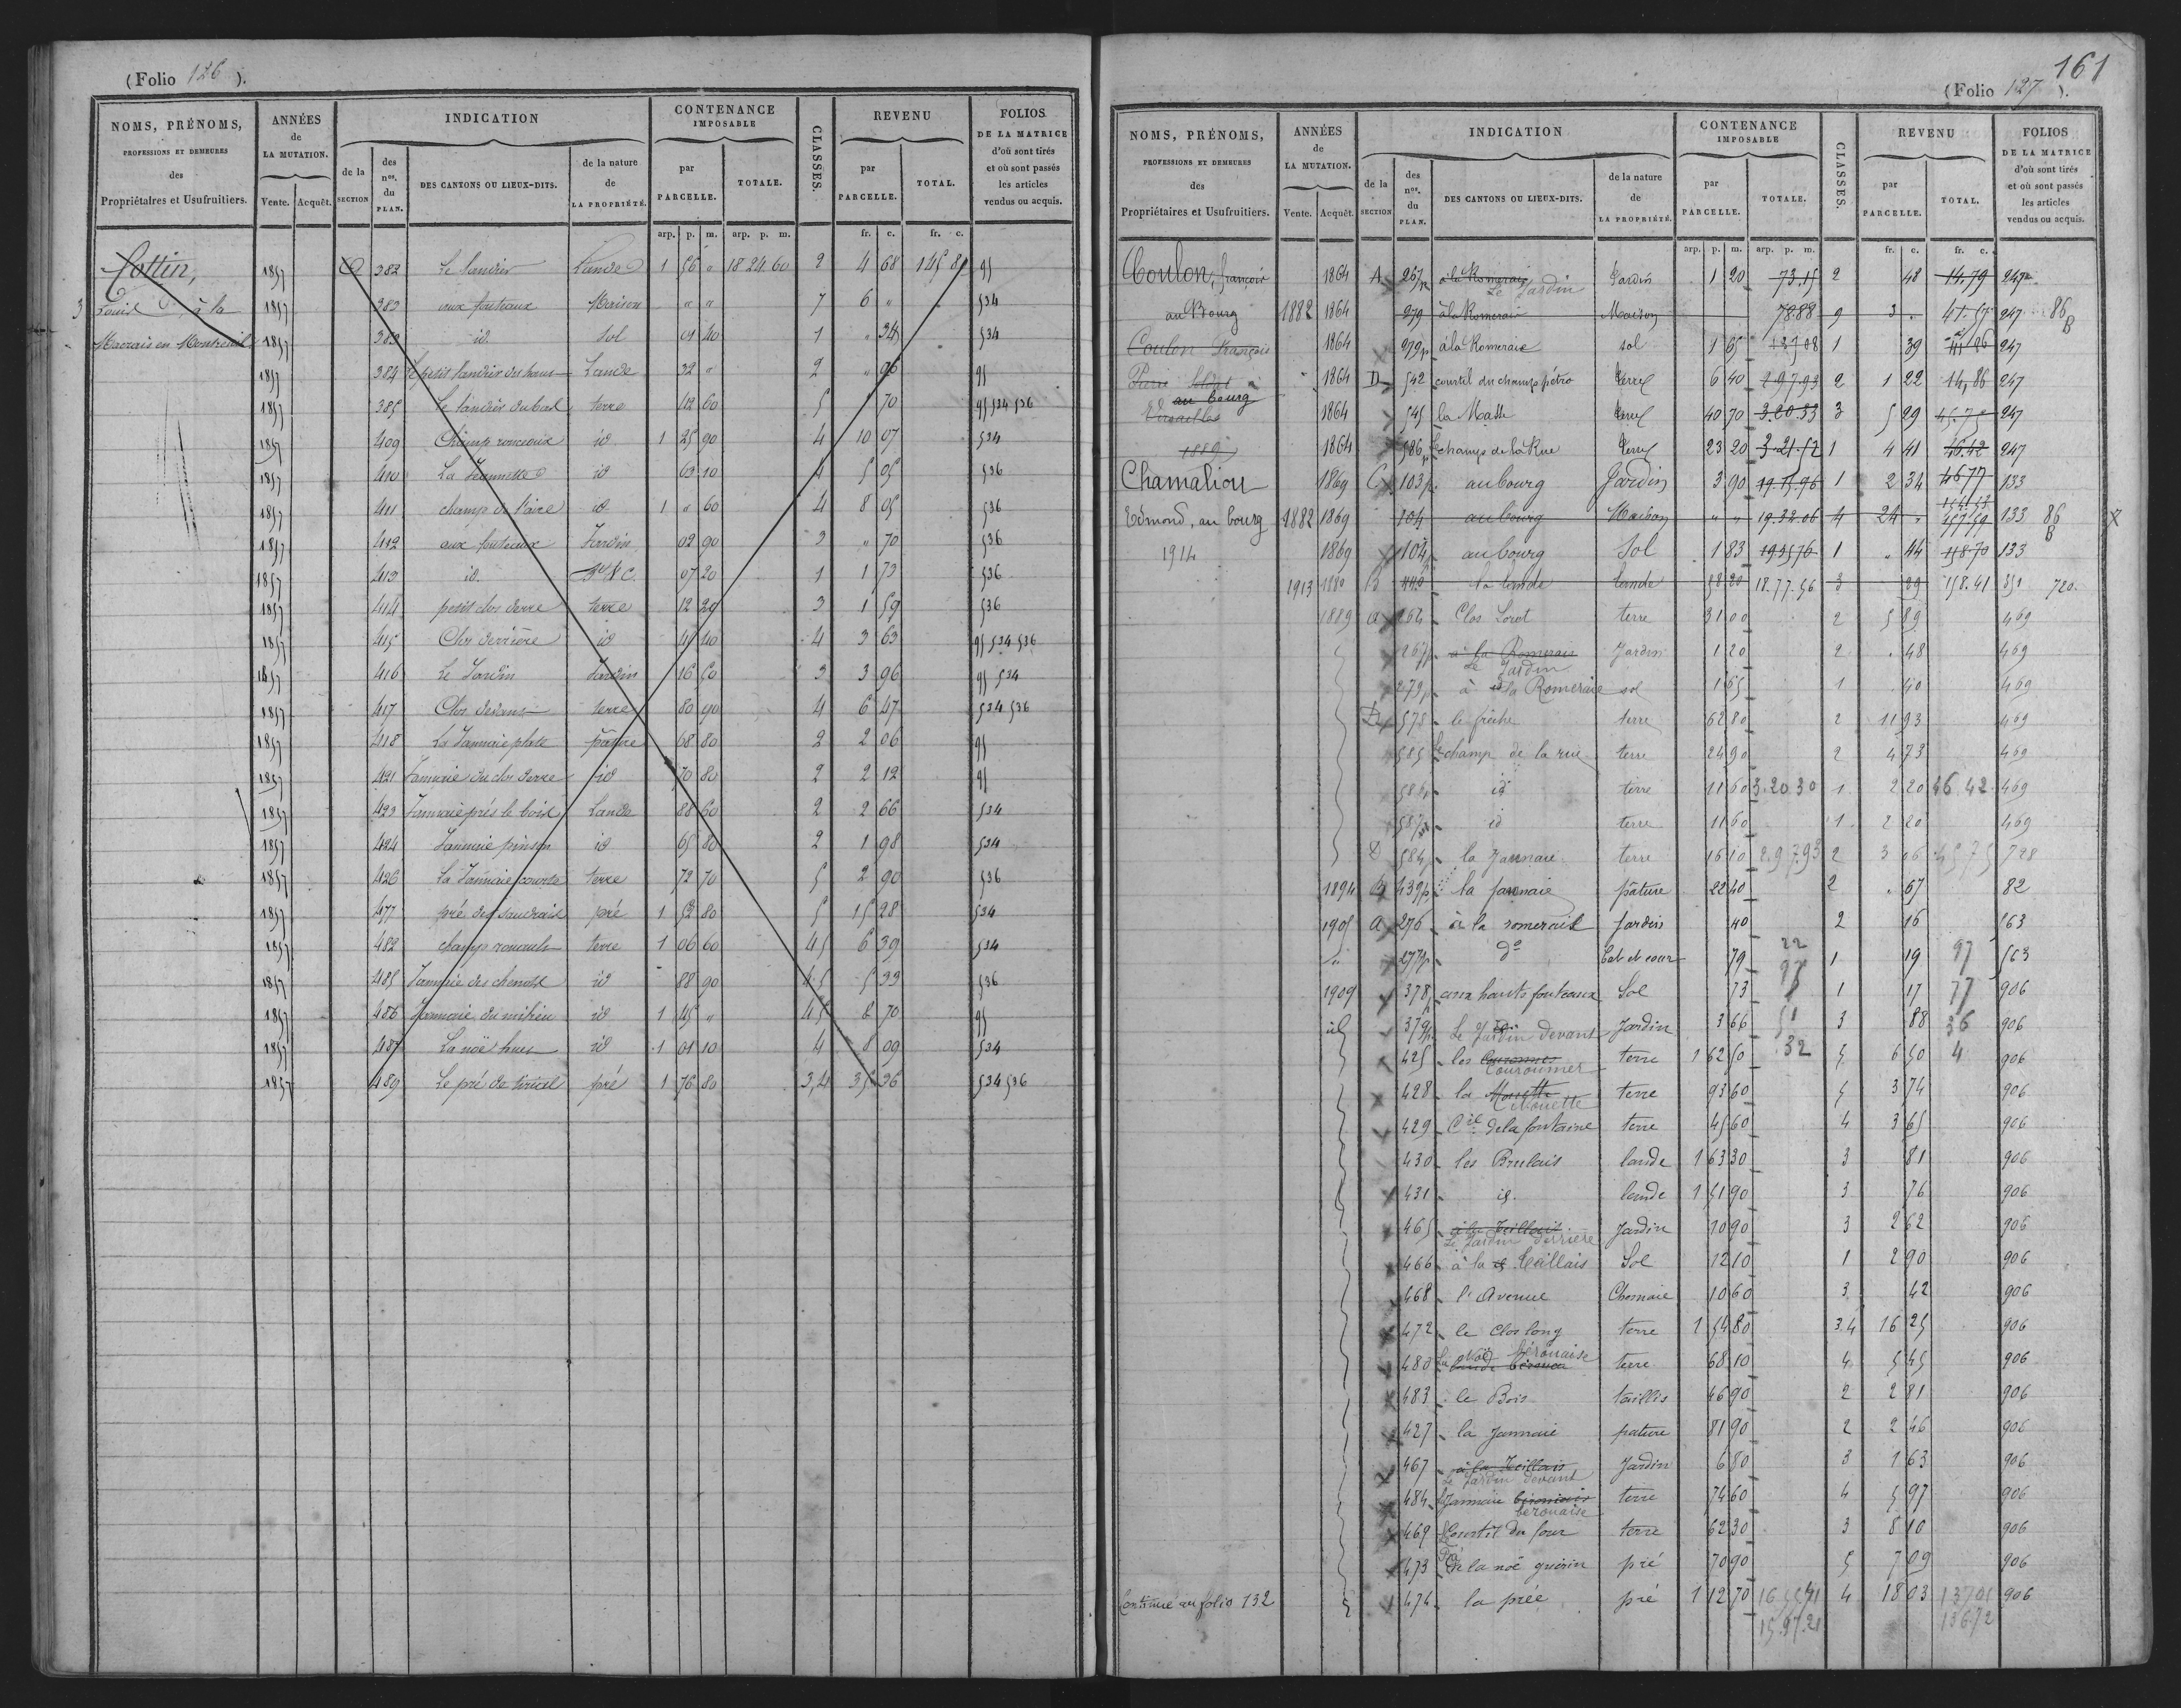 (Folio 126 ).
NOMS, PRÉNOMS, PROFESSIONS ET DEMEURES des Propriétaires et Usufruitiers.
ANNÉES de LA MUTATION. Vente. Acquêt.
INDICATION de la SECTION des nos. du PLAN. DES CANTONS OU LIEUX-DITS. de la nature de LA PROPRIÉTÉ.
CONTENANCE IMPOSABLE par PARCELLE. TOTALE.
CLASSES.
REVENU par PARCELLE. TOTAL.
FOLIOS DE LA MATRICE d'où sont tirés et où sont passés les articles vendus ou acquis.
arp. p. m. arp. p. m. fr. c. fr. c.
Cottin, 1857 382 Le landier Lande 1 56 " 18 24 60 2 4 68 145 81 95
3 Louis à la 1857 383 aux fouteaux Maison " " 7 6 " 534
Macrais en Montreuil 1857 383 id. Sol 01 40 1 " 34 534
1857 384 Le petit landier du haut Lande 32 " 2 " 96 95
1857 385 Le landier du bas terre 42 60 5 1 70 95 534 536
1857 409 Champ ronceux id 1 25 90 4 10 07 534
1857 410 La Jeannette id 63 10 4 5 05 536
1857 411 champ de l'aire id 1 " 60 4 8 05 536
1857 412 aux fouteaux Jardin 02 90 3 " 70 536
1857 413 id. Bt & C. 07 20 1 1 73 536
1857 414 petit clos derre terre 12 20 3 1 59 536
1857 415 Clos derrière id 45 40 4 3 63 95 534 536
1857 416 Le Jardin Jardin 16 50 3 3 96 95 534
1857 417 Clos devant terre 80 90 4 6 47 534 536
1857 418 La Jannaie plate pâture 68 80 2 2 06 95
1857 421 Jannaie du clos derre id 70 80 2 2 12 95
1857 423 Jannaie près le bois Lande 88 60 2 2 66 534
1857 424 Jannaie pinson id 65 80 2 1 98 534
1857 426 La Jannaie courte terre 72 70 5 2 90 536
1857 477 pré des Jaudrais pré 1 52 80 5 15 28 534
1857 482 champ rouault terre 1 06 60 4 5 6 39 534
1857 485 Jannaie des chenots id 88 90 4 5 5 33 536
1857 486 Jannaie du milieu id 1 45 " 4 5 8 70 95
1857 487 La noë hues id 1 01 10 4 8 09 534
1857 489 Le pré de tirial pré 1 76 80 3,4 35 36 534 536
161
(Folio 127 ).
NOMS, PRÉNOMS, PROFESSIONS ET DEMEURES des Propriétaires et Usufruitiers.
ANNÉES de LA MUTATION. Vente. Acquêt.
INDICATION de la SECTION des nos. du PLAN. DES CANTONS OU LIEUX-DITS. de la nature de LA PROPRIÉTÉ.
CONTENANCE IMPOSABLE par PARCELLE. TOTALE.
CLASSES.
REVENU par PARCELLE. TOTAL.
FOLIOS DE LA MATRICE d'où sont tirés et où sont passés les articles vendus ou acquis.
arp. p. m. arp. p. m. fr. c. fr. c.
Coulon, françois 1864 A 267p à la Romerais Le Jardin Jardin 1 20 73.15 2 48 14.79 247
au Bourg 1882 1864 279 à la Romerais Maison 78.88 9 3 . 47.57 247 86 B
Coulon François 1864 279p à la Romeraie sol 1 65 1 39 247
1864 D 542 courtil du champ pétro terre 6 40 2.97.93 2 1 22 14,86 247
au bourg
1864 545 la Masse terre 40 70 3.20.33 3 5 29 45.75 247
1889 1864 586p Le champ de la Rue terre 23 20 3.21.52 1 4 41 46.42 247
Chamaliou 1869 C 103p au bourg Jardin 3 90 19.15.96 1 2 34 46 77 133
Edmond, au bourg 1882 1869 104 au bourg Maison " " 19.32.06 4 24 " 157 59 133 86 B
1914 1869 104 au bourg Sol 1 83 19 35 76 1 " 44 158 70 133
1913 1880 B 440 la lande lande 58 20 18.77.56 3 29 158.41 351 720.
1889 a 264 Clos Lorot terre 31 00 2 5 89 469
267p à la Romerais Le Jardin Jardin 1 20 2 . 48 469
279p à la Romeraie sol 1 65 1 . 40 469
D 578 le friche terre 62 80 2 11 93 469
585 Le champ de la rue terre 24 90 2 4 73 469
586p id terre 11 60 3.20 30 1 2 20 46.42 469
587 id terre 11 60 1 2 20 469
D 584 la Jannaie terre 16 10 2.97.93 2 3 06 45 75 728
1894 439p la Jannaie pâture 22 40 2 . 67 82
1905 a 276 à la romerais Jardin 40 2 16 563
" 277p do Bat et cour 79 22 97 1 19 97 563
1909 378p aux hauts fouteaux Sol 73 1 17 77 906
id 379p Le Jardin devant Jardin 3 66 51 3 88 36 906
425 les Couronnes Couroumer terre 1 62 50 32 5 6 50 4 906
428 la Mouette terre 93 60 5 3 74 906
429 Ctil de la fontaine terre 45 60 4 3 65 906
430 les Brulais lande 1 63 30 3 81 906
431 id. lande 1 51 90 3 76 906
465 à la Teillais Le Jardin derrière Jardin 10 90 3 2 62 906
466 à la Teillais Sol 12 10 1 2 90 906
468 l'Avenue Chenaie 10 60 3 42 906
472 le Clos long terre 1 54 80 3.4 16 25 906
480 La Noë bérouaise terre 68 10 4 5 45 906
483 le Bois taillis 46 90 2 2 81 906
427 la Jannaie pature 81 90 2 2 46 906
467 à la Teillais Le Jardin devant Jardin 6 80 3 1 63 906
484 La Jannaie bérouaise terre 74 60 4 5 97 906
469 Le Courtil du four terre 62 30 3 8 10 906
473 Pré de la noë guérin pré 70 90 5 7 09 906
Continué au folio 132 474 la prée pré 1 12 70 4 18 03 906
15.97.21 136 72